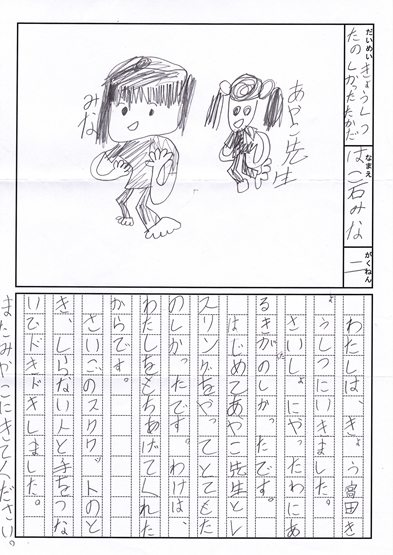 だいめい
きょうしつ
たのしかったたかだ
なまえ
は二石みな
がくねん
二
あやこ先生
みな
わたしは、きょう富田き
ょうしつにいきました。
さいしょにやったわにあ
るきがたのしかったです。
はじめてあやこ先生とレ
スリングをやってとてもた
のしかったです。わけは、
わたしをもちあげてくれた
からです。
さいごのスクワットのと
き、しらない人と手をつな
いでドキドキしました。
またみやこにきてください。